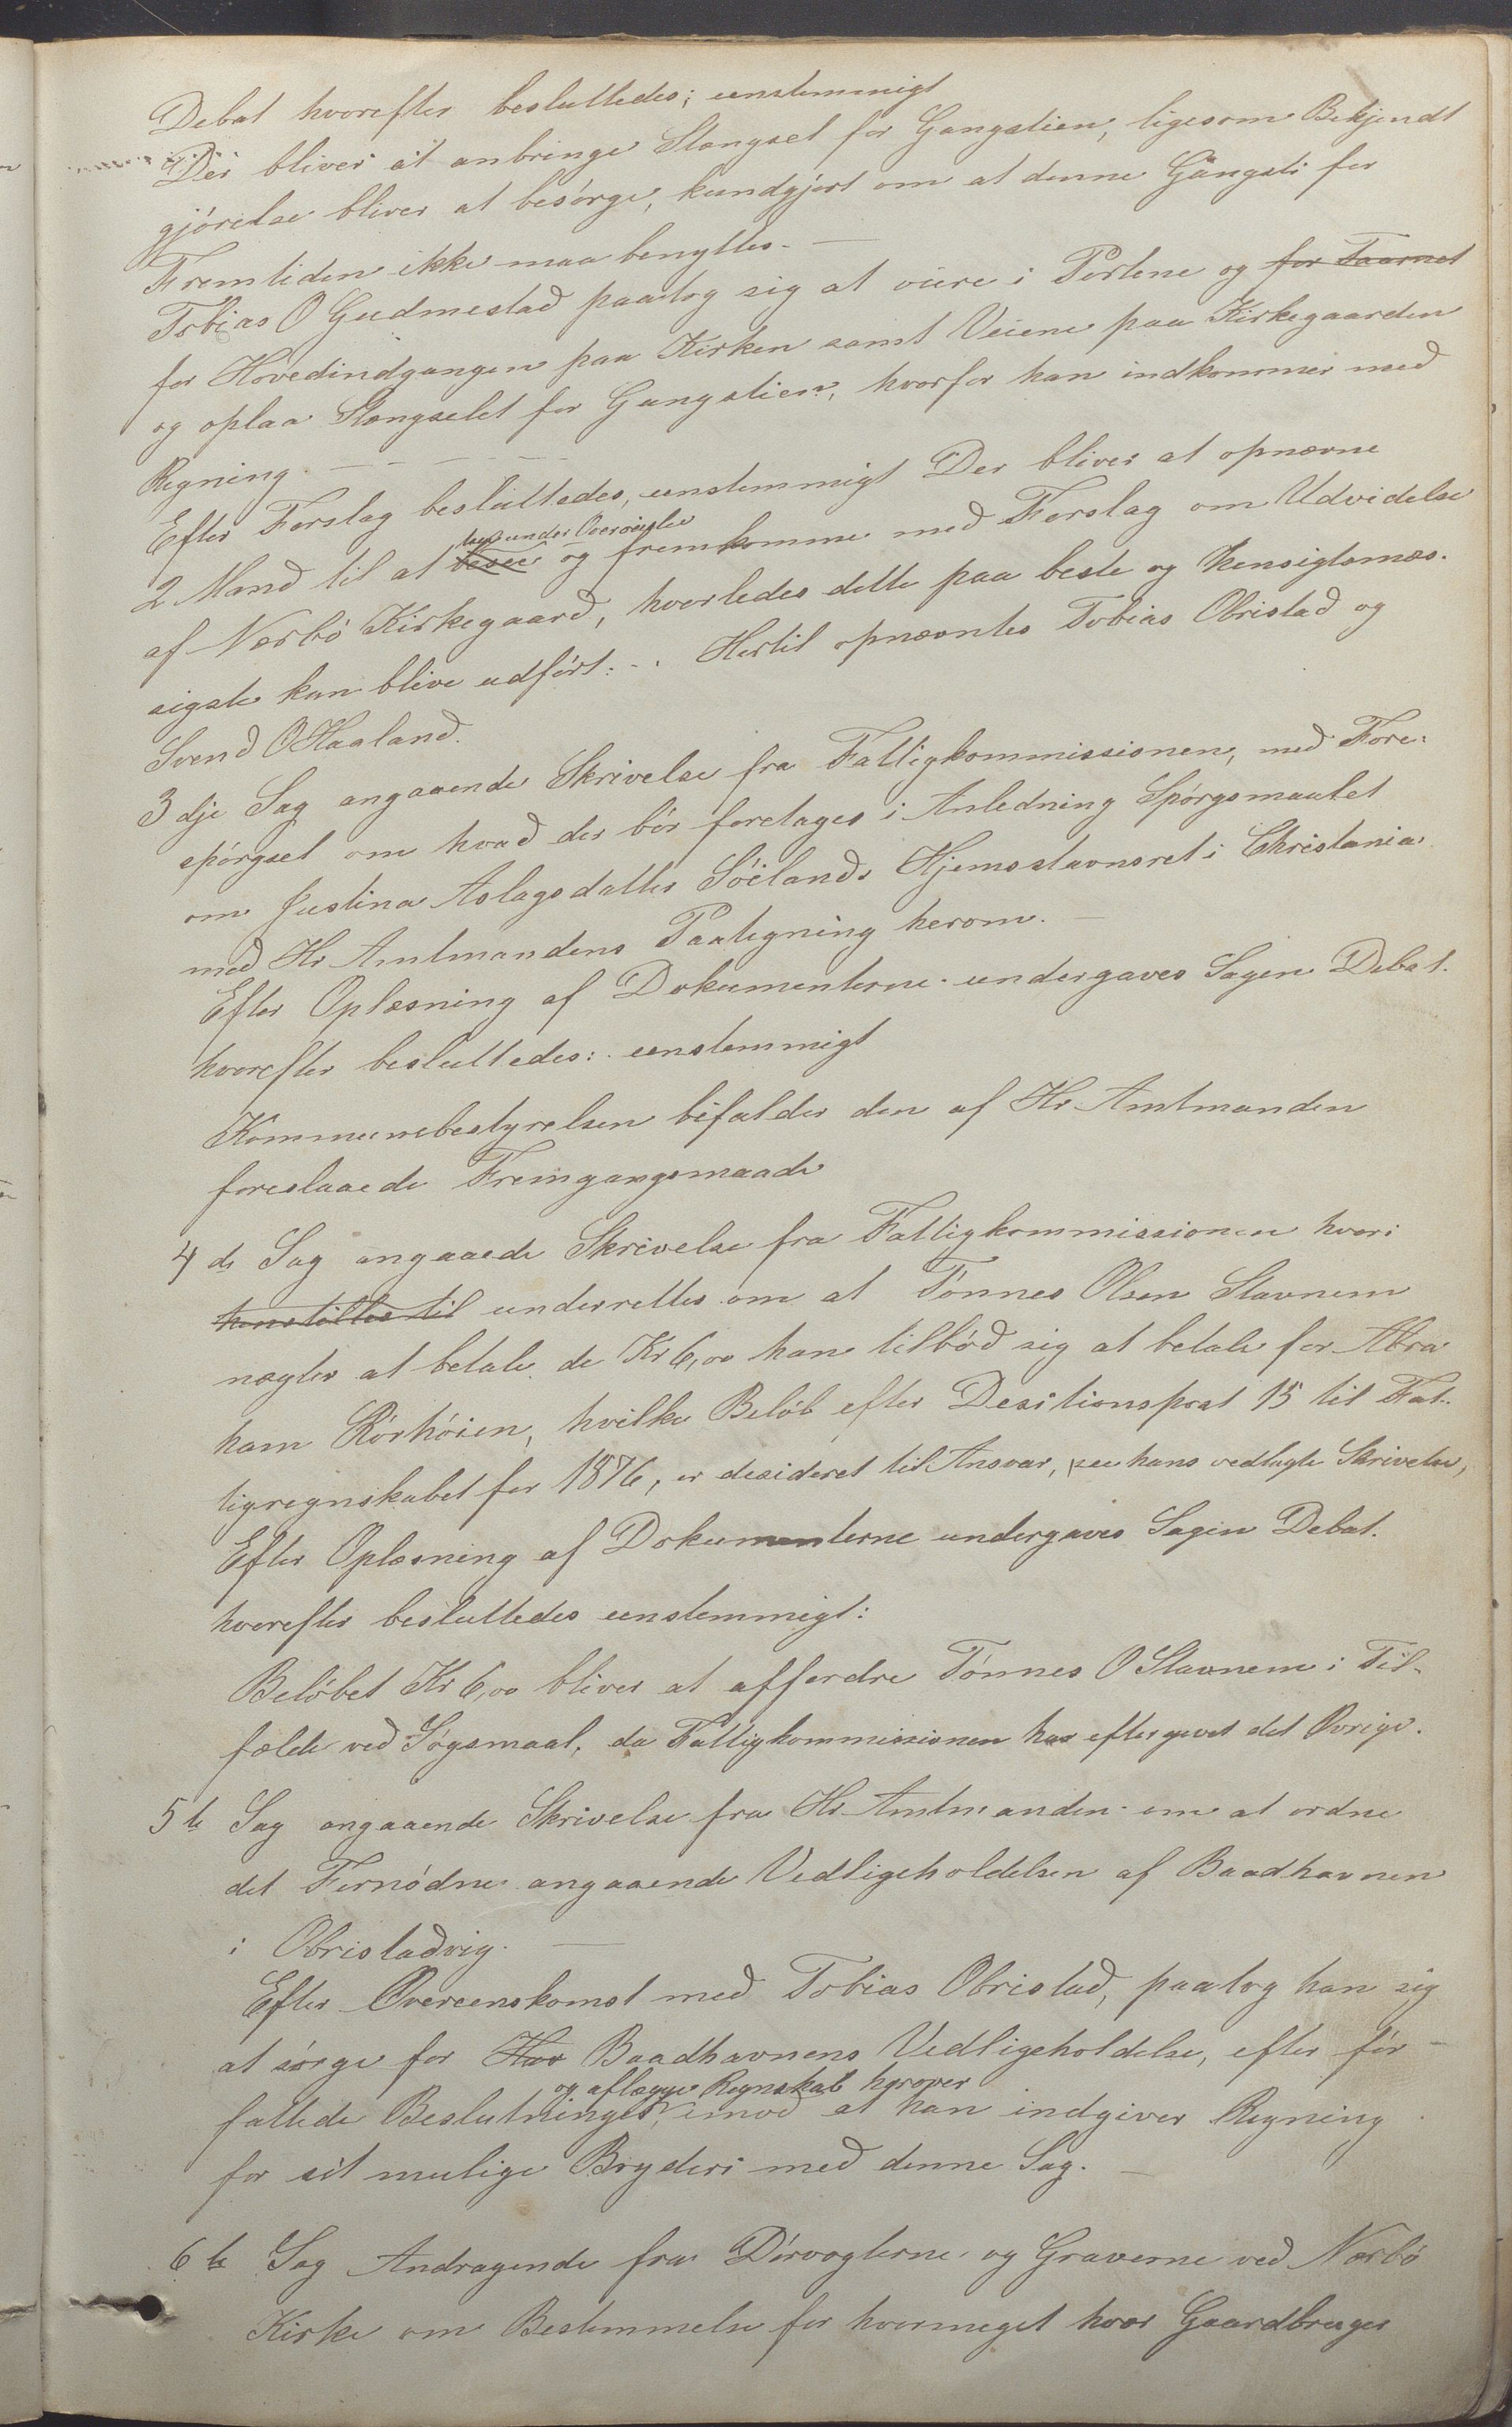 Debat hvorefter besluttedes; eenstemmigt
Der bliver at anbringe Stængsel for Gangstien, ligesom Bekjendt
gjórelse bliver at besórge, kundgjort om at denne Gangsti for
Fremtiden ikke maa benyttes. —
Tobias O Gudmestad paatog sig at være i Portene og for Taarnet
for Hovedindgangen paa Kirken samt Veiene paa Kirkegaarden
og oplaa Stængselet for Gangstien, hvorfor han indkommer med
Regning. — — — — —
Efter Forslag besluttedes, eenstemmigt Der bliver at opnævne
tage under Overveielse
2 Mand til at besee og fremkomme med Forslag om Udvidelse
af Nærbó Kirkegaard, hvorledes dette paa beste og hensigtsmæs-
sigste kan blive udfórt. - . Hertil opnævntes Tobias Obristad og
Svend O Haaland.
3 dje Sag angaaende Skrivelse fra Fattigkommissionen, med Fore-
spórgsel om hvad der bór foretages i Anledning Spórgsmaalet
om Justina Aslagsdatter Sóilands Hjemsstavnsret i Christania
med Hr Amtmandens Paategning herom. —
Efter Oplæsning af Dokumenterne undergaves Sagen Debat.
hvorefter besluttedes: eenstemmigt
Kommunebestyrelsen bifalder den af Hr Amtmanden
foreslaaede Fremgangsmaade
4 de Sag angaaede Skrivelse fra Fattigkommissionen hvori
henstilles til underrettes om at Tónnes Olsen Stavnem
nægter at betale de Kr 6,00 han tilbód sig at betale for Abra
ham Rórhóien, hvilke Belób efter Desitionspost 15 til Fat-
tigregnskabet for 1876, er desideret til Ansvar, see hans vedlagte Skrivelse,
Efter Oplæsning af Dokumenterne undergaves Sagen Debat.
hvorefter besluttedes eenstemmigt:
Belóbet Kr 6,00 bliver at affordre Tónnes O Stavnem i Til-
fælde ved Sógsmaal, da Fattigkommissionen har eftergivet det Óvrige.
5 te Sag angaaende Skrivelse fra Hr Amtmanden om at ordne
det Fornódne angaaende Vedligeholdelsen af Baadhavnen
i Obristadvig. —
Efter Overeenskomst med Tobias Obristad, paatog han sig
at sórge for Hav Baadhavnens Vedligeholdelse, efter fór-
og aflægge Regnskab herover
fattede Beslutninger, imod at han indgiver Regning
for sit mulige Bryderi med denne Sag. —
6 te Sag Andragende fra Dórvogterne og Graverne ved Nærbó
Kirke om Bestemmelse for hvormeget hver Gaardbruger